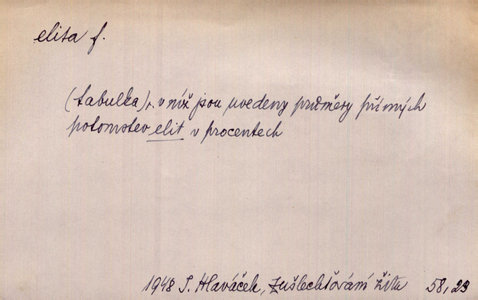 elita f.
(tabulka), v níž jsou uvedeny průměry přímých
potomstev elit v procentech
1948 S. Hlaváček, Zušlechťování žita 58, 23